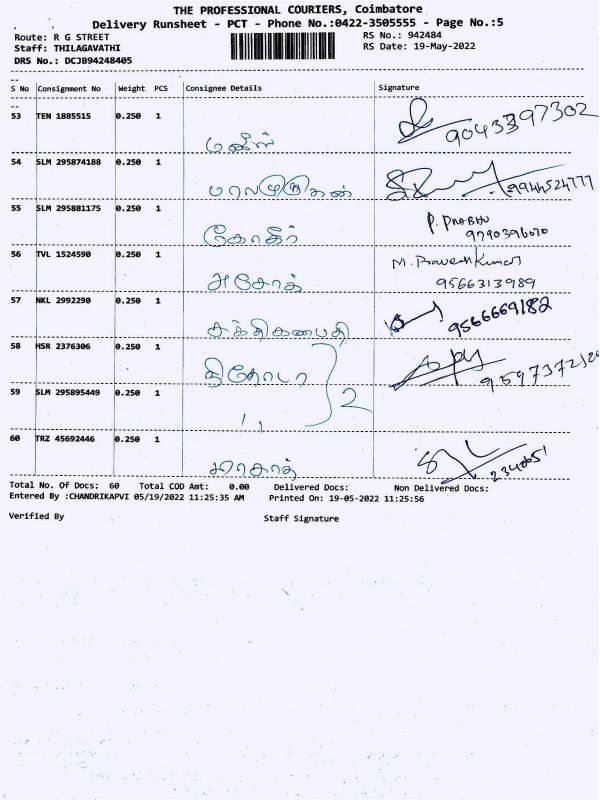 THE PROFESSIONAL COURIERS, Coimbatore
Delivery Runsheet - PCT - Phone No.:0422-3505555 - Page No.:5
Route: R G STREET RS No.: 942484
Staff: THILAGAVATHI RS Date: 19-May-2022
DRS No.: DCJB94248405
S No Consignment No Weight PCS Consignee Details Signature
53 TEN 1885515 0.250 1 மனீஸ் 9043397302
54 SLM 295874188 0.250 1 பாலமுருகன் 9944524777
55 SLM 295881175 0.250 1 P. PRABHU
9790396070
56 TVL 1524590 0.250 1 அசோக் M. Praveen Kumar
9566313989
57 NKL 2992290 0.250 1 சக்திகணபதி 9566669182
58 HSR 2376306 0.250 1
59 SLM 295895449 0.250 1 ,, 2
60 TRZ 45692446 0.250 1 2340651
Total No. Of Docs: 60 Total COD Amt: 0.00 Delivered Docs: Non Delivered Docs:
Entered By :CHANDRIKAPVI 05/19/2022 11:25:35 AM Printed On: 19-05-2022 11:25:56
Verified By Staff Signature